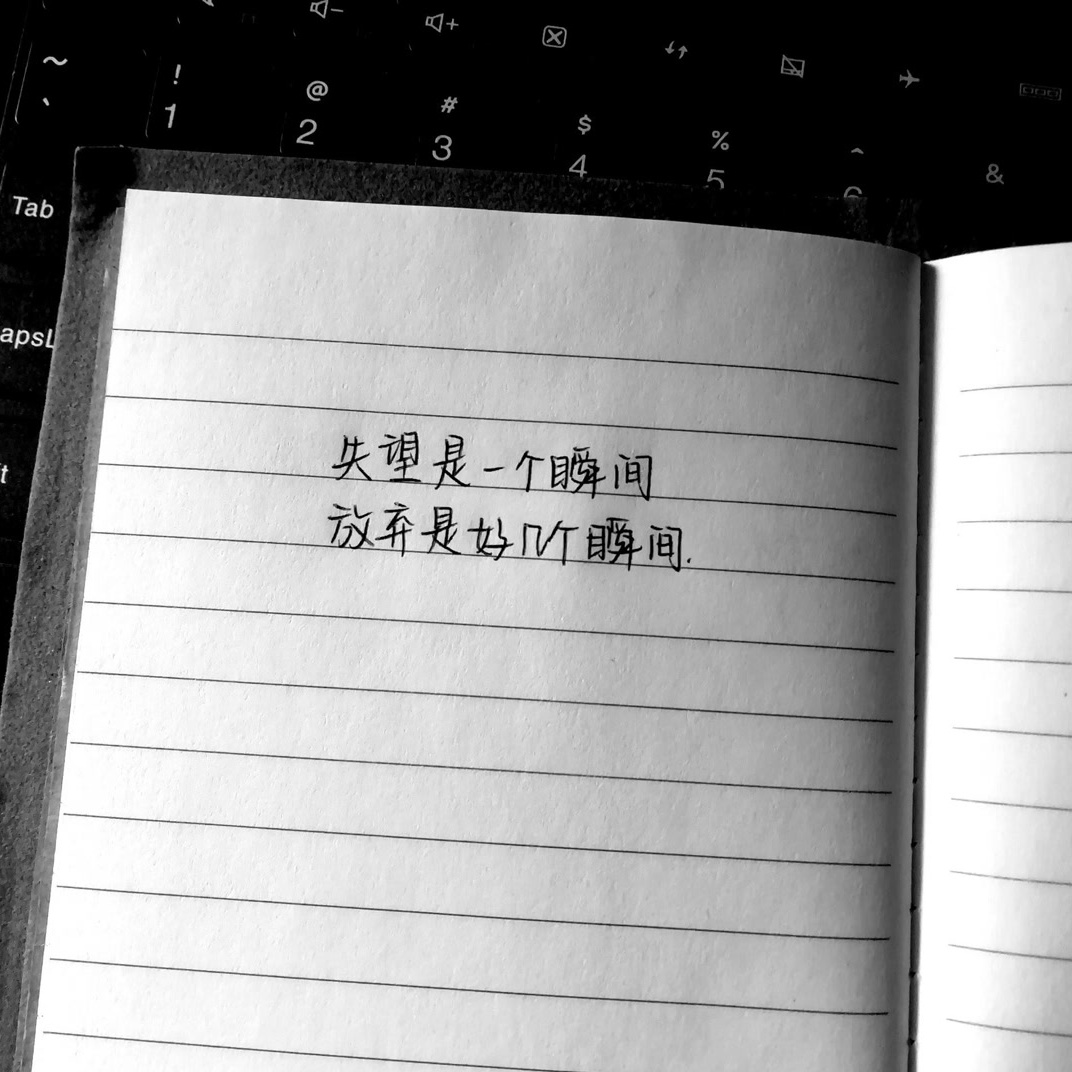 ~ ! @ # $ % ^ &
` 1 2 3 4 5 6
Tab
apsL
t
失望是一个瞬间
放弃是好几个瞬间.